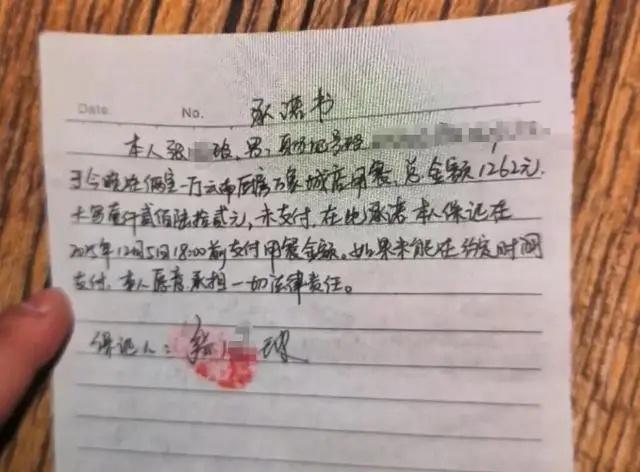 Date. No. 承诺书
本人张 男,身份证号码
于今晚在 一厅云南 万象城店用餐,总金额1262元.
大写壹仟贰佰陆拾贰元,未支付,在此承诺本人保证在
2025年12月5日18:00前支付用餐金额。如果未能在约定时间
支付,本人愿意承担一切法律责任。
保证人:张